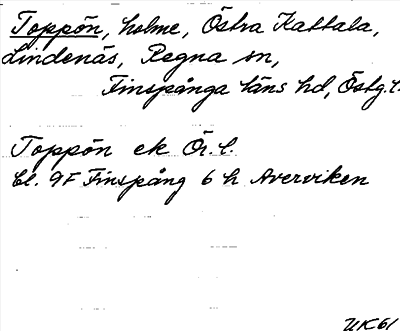 Toppön, holme, Östra Kattala,
Lindenäs, Regna sn,
Finspånga läns hd, Östg.l.
Toppön ek Ör.l.
bl. 9F Finspång 6 h Averviken
UK 61